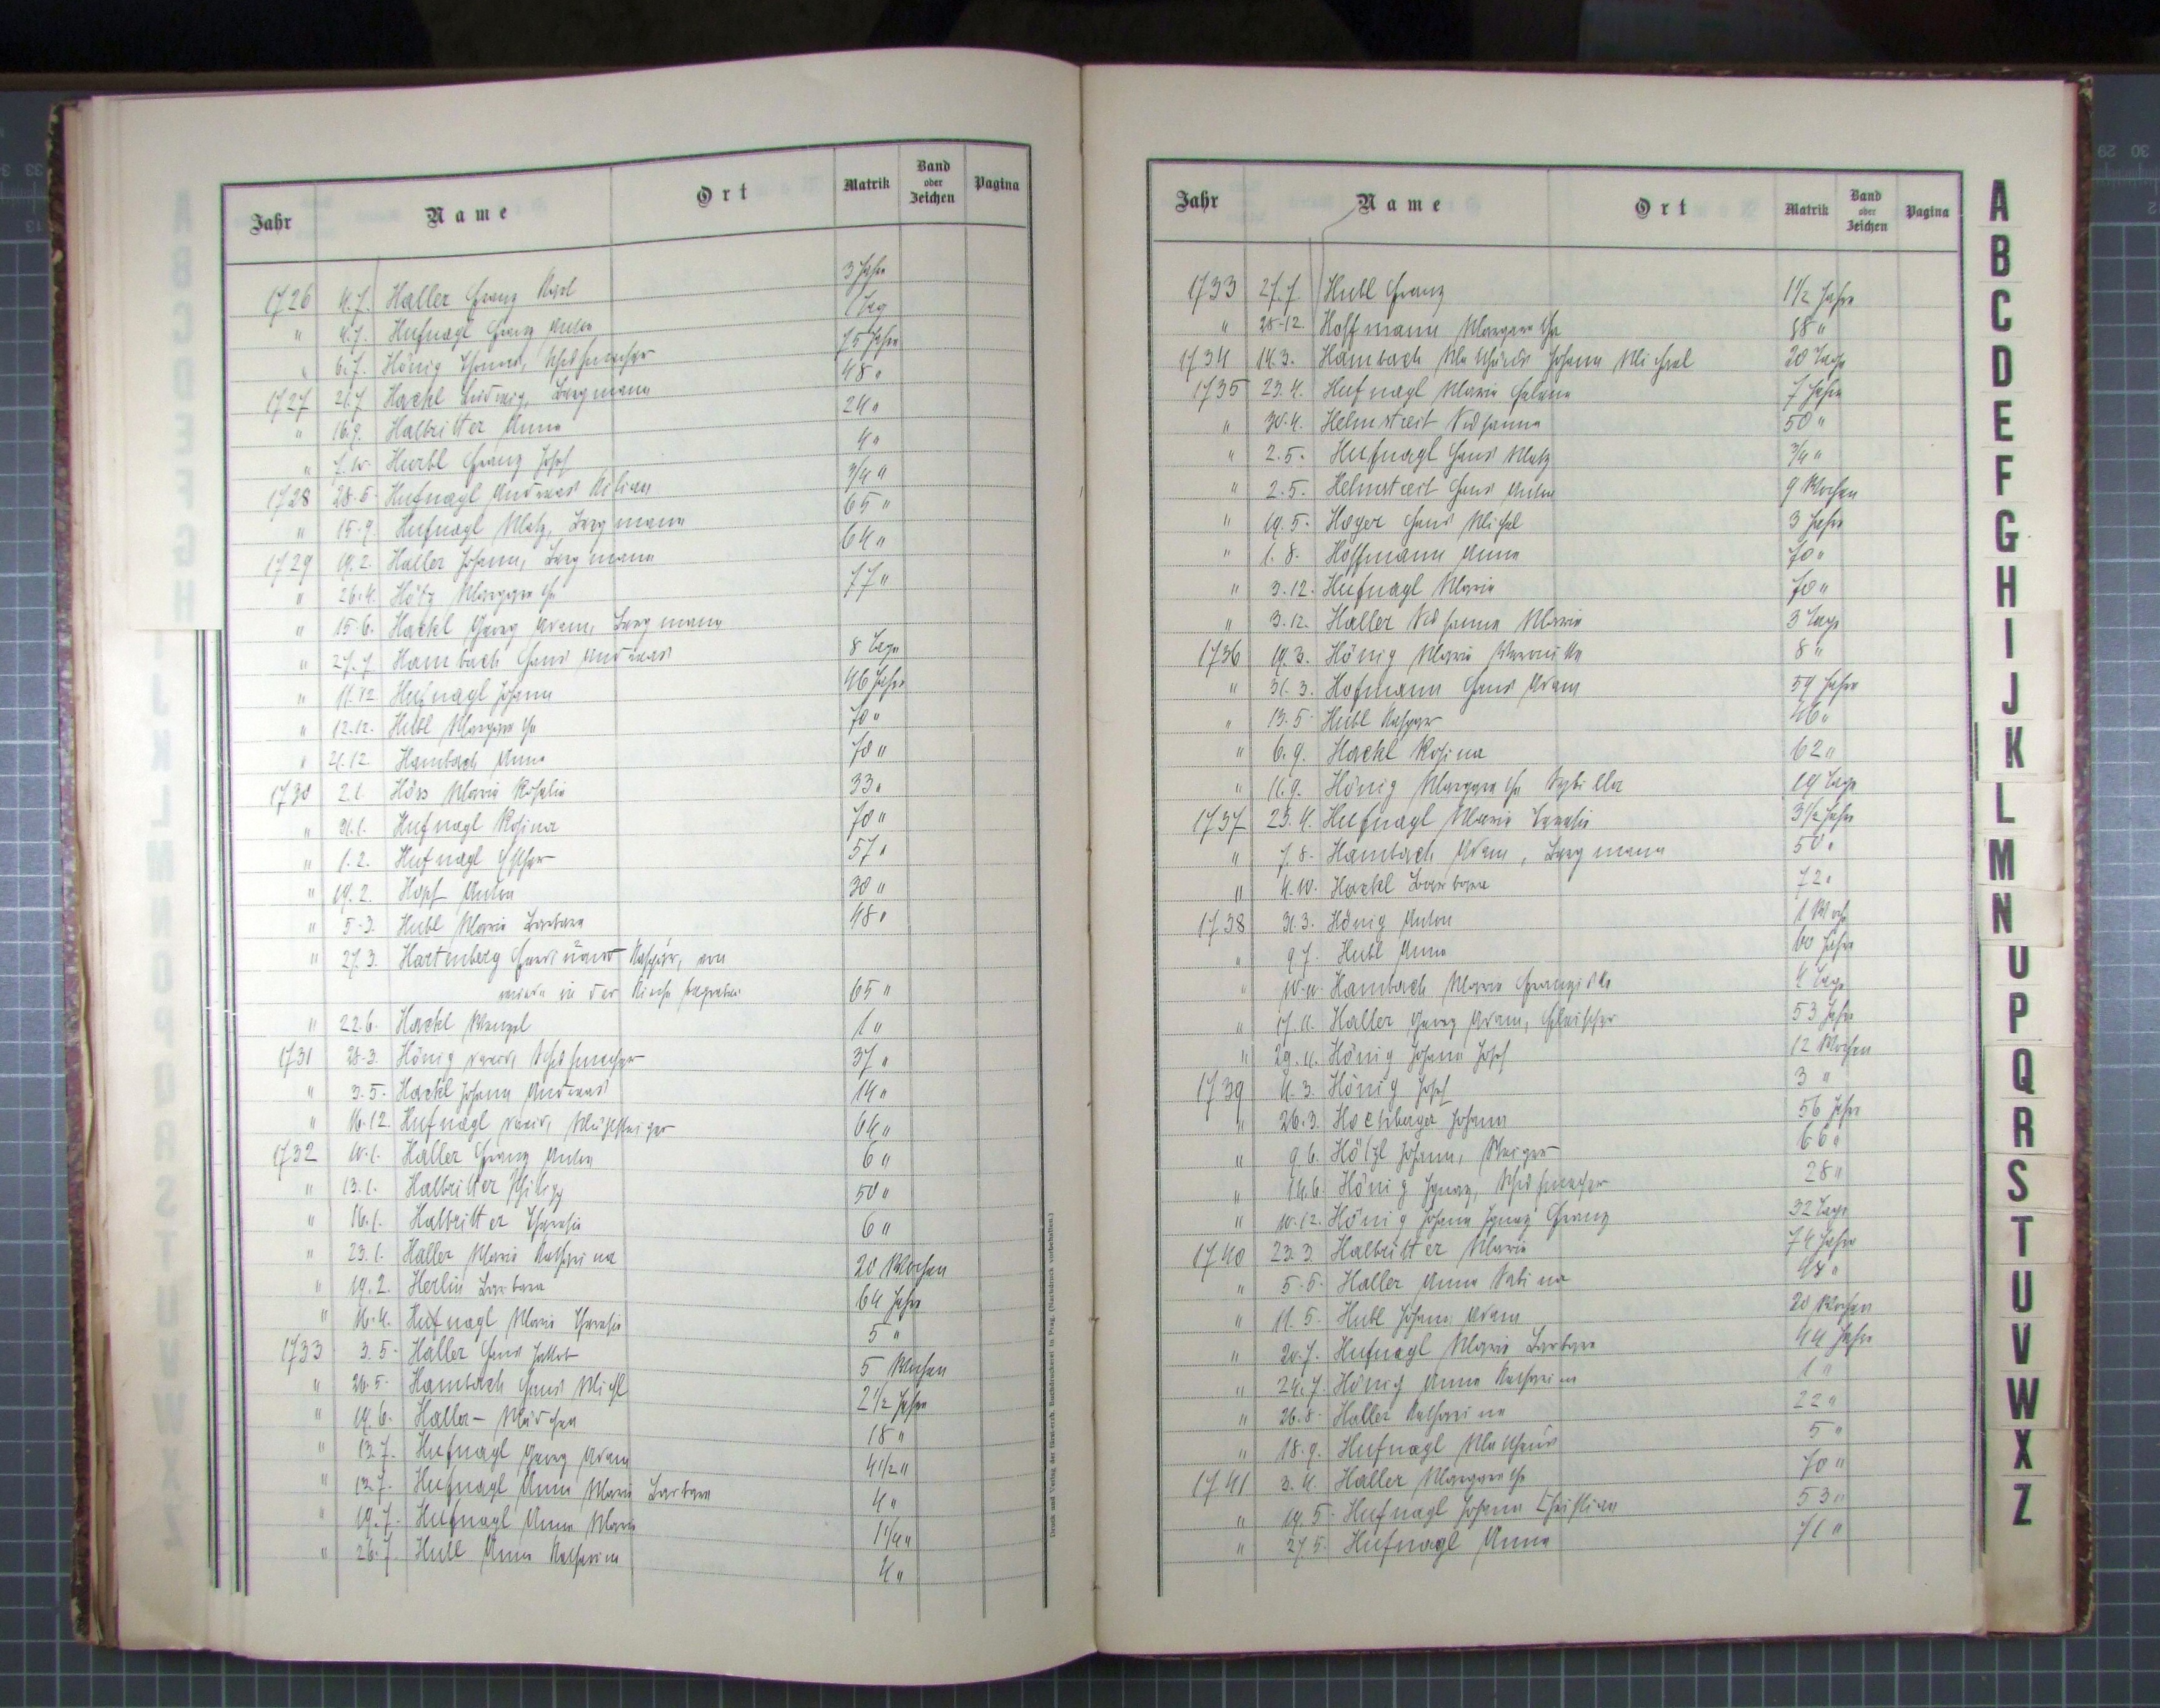 Jahr Name Ort Matrik Band oder Zeichen Pagina
1726 4.7. Haller Franz Karl 3 Jahre
" 4.7. Hufnagl Franz Anton 1 Tag
" 6.7. Hönig Thomas, Schuhmacher 75 Jahre
1727 21.7. Hackl Ludwig, Bergmann 48 "
" 16.9. Halbritter Anna 24 "
" 7.10. Huebl Franz Josef 4 "
1728 28.5. Hufnagl Andreas Kilian 3/4 "
" 15.9. Hufnagl Matz, Bergmann 65 "
1729 19.2. Haller Johann, Bergmann 64 "
" 26.4. Hötz Margaretha 77 "
" 15.6. Hackl Georg Adam, Bergmann
" 27.7. Hambach Hans Andreas 8 Tage
" 11.12. Hufnagl Johann 46 Jahre
" 12.12. Hubl Margaretha 70 "
" 21.12. Hambach Anna 70 "
1730 2.1. Höss Maria Rosalia 33 "
" 21.1. Hufnagl Rosina 70 "
" 1.2. Hufnagl Esther 57 "
" 19.2. Hopf Anton 30 "
" 5.3. Hubl Maria Barbara 48 "
" 27.3. Hartenberg Ferdinand Kaspar, von
wurde in der Kirche begraben 65 "
" 22.6. Hackl Wenzel 1 "
1731 28.3. Hönig David, Schuhmacher 37 "
" 3.5. Hackl Johann Andreas 14 "
" 16.12. Hufnagl David, 64 "
1732 10.1. Haller Franz Anton 6 "
" 13.1. Halbritter Philipp 50 "
" 16.1. Halbritter Theresia 6 "
" 23.1. Haller Maria Katharina 20 Wochen
" 19.2. Herlin Barbara 64 Jahre
" 16.4. Hufnagl Maria Theresia 5 "
1733 3.5. Haller Hans Jakob 5 Wochen
" 26.5. Hambach Hans Michl 2 1/2 Jahre
" 19.6. Haller - Mädchen 18 "
" 13.7. Hufnagl Georg Adam 4 1/2 "
" 13.7. Hufnagl Anna Maria Barbara 4 "
" 19.7. Hufnagl Anna Maria 1 1/4 "
" 26.7. Hubl Anna Katharina 4 "
Jahr Name Ort Matrik Band oder Zeichen Pagina
1733 27.7. Hubl Franz 1 1/2 Jahre
" 28.12. Hoffmann Margaretha 58 "
1734 14.3. Hambach Mathäus Johann Michael 20 Tage
1735 23.4. Hufnagl Maria Helena 7 Jahre
" 30.4. Helmstreit Susanna 50 "
" 2.5. Hufnagl Hans Matz 3/4 "
" 2.5. Helmstreit Hans Anton 9 Wochen
" 19.5. Hager Hans Michel 3 Jahre
" 1.8. Hoffmann Anna 70 "
" 3.12. Hufnagl Maria 70 "
" 3.12. Haller Susanna Maria 3 Tage
1736 19.3. Hönig Maria Veronika 8 "
" 31.3. Hofmann Hans Adam 59 Jahre
" 13.5. Hubl Kaspar 46 "
" 6.9. Hackl Rosina 62 "
" 11.9. Hönig Margaretha Sybilla 19 Tage
1737 23.4. Hufnagl Maria Theresia 3 1/2 Jahre
" 7.8. Hambach Adam, Bergmann 50 "
" 4.10. Hackl Barbara 72 "
1738 31.3. Hönig Anton 1 Woche
" 9.7. Hubl Anna 60 Jahre
" 10.10. Hambach Maria Franziska 4 Tage
" 17.11. Haller Georg Adam, Fleischer 53 Jahre
" 29.11. Hönig Johann Josef 12 Wochen
1739 4.3. Hönig Josef 3 "
" 26.3. Hochberger Johann 56 Jahre
" 9.6. Hölzl Johann, Steiger 66 "
" 14.6. Hönig Ignaz, Schuhmacher 28 "
" 10.12. Hönig Johann Ignaz Franz 32 Tage
1740 23.3. Halbritter Maria 74 Jahre
" 5.5. Haller Anna Sabina 48 "
" 11.5. Hubl Johann Adam 20 Wochen
" 20.7. Hufnagl Maria Barbara 44 Jahre
" 24.7. Hönig Anna Katharina 1 "
" 26.8. Haller Katharina 22 "
" 18.9. Hufnagl Mathäus 5 "
1741 3.4. Haller Margaretha 70 "
" 19.5. Hufnagl Johann Christian 53 "
" 27.5. Hufnagl Anna 71 "
A
B
C
D
E
F
G
H
I
J
K
L
M
N
O
P
Q
R
S
T
U
V
W
X
Z